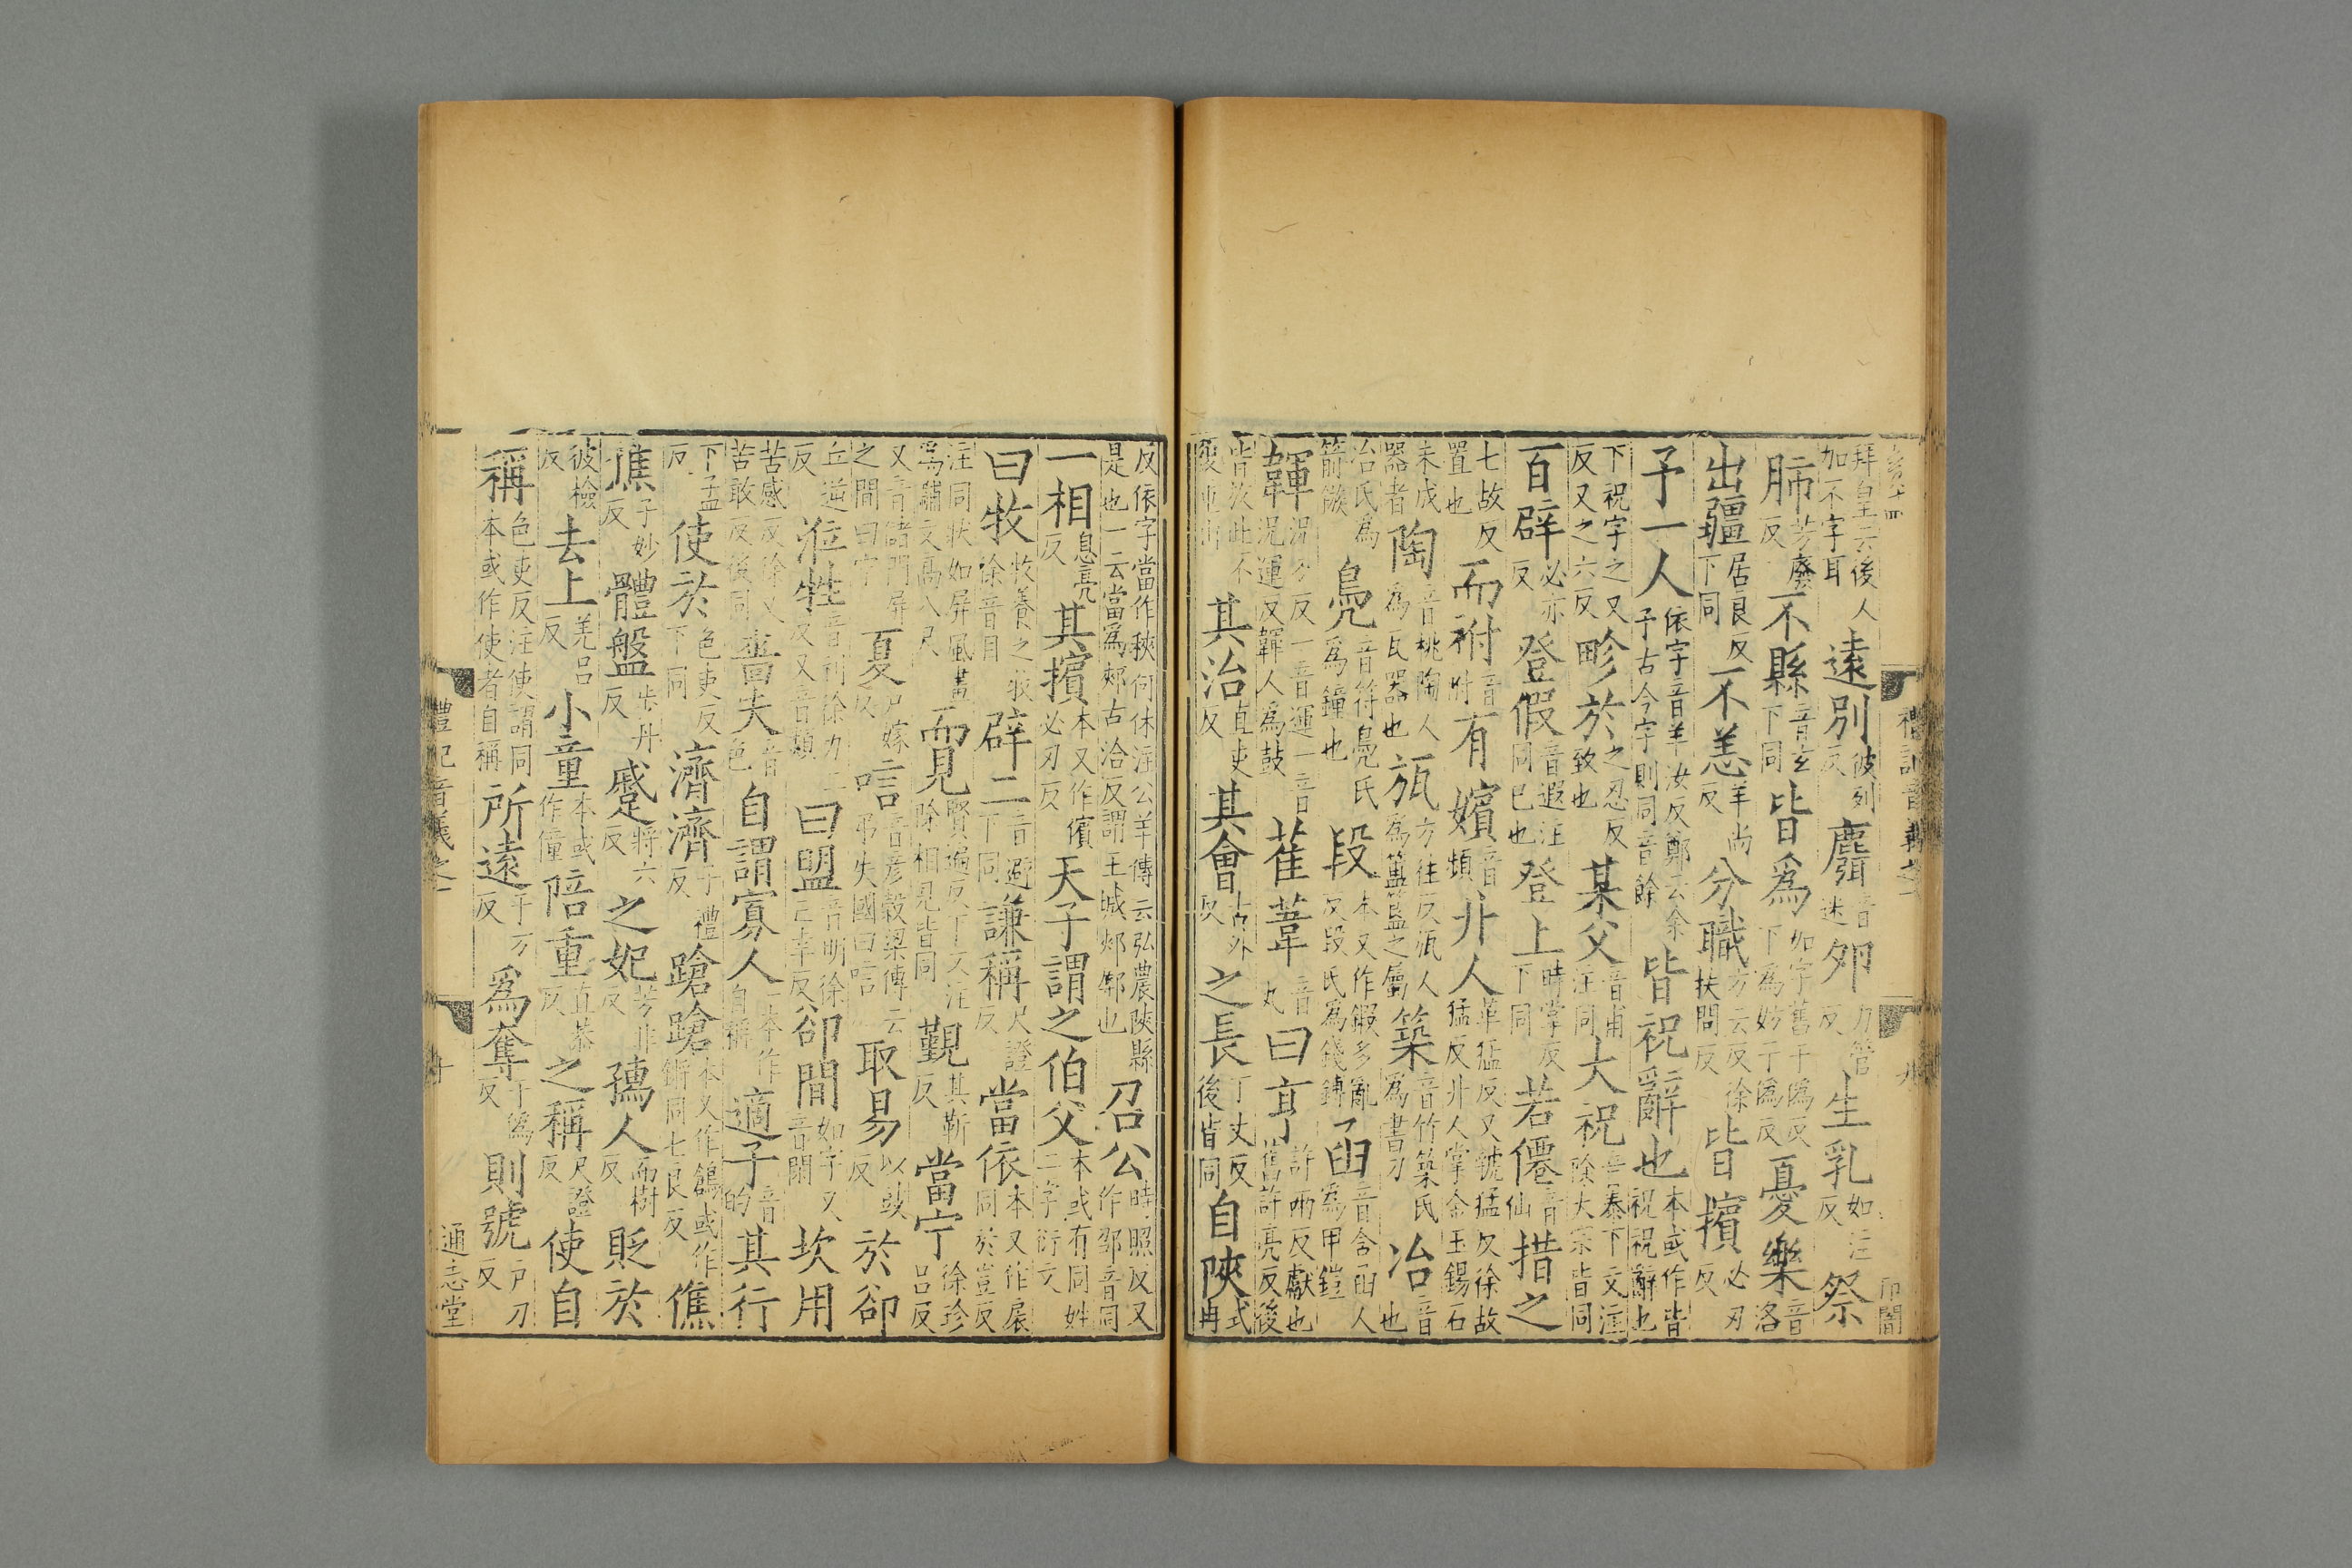 拜皇云後人加不字耳 遠別彼列反 麛音迷 卵力管反 生乳如注反 祭
肺芳廢反 不縣音玄下同 皆爲如字舊于僞反下爲妙于僞反 憂樂音洛
出疆居良反下同 不恙羊尚反 分職方云反徐扶問反 皆擯必刃反
予一人依字音羊汝反鄭云余予古今字則同音餘 皆祝辭也本或作皆祝祝辭也
下祝字之又反又之六反 畛於之忍反致也 某父音甫注同 大祝音泰下文注除大宰皆同
百辟必亦反 登假音遐注同已也 登上時掌反下同 若僊音仙 措之
七故反置也 而祔音附 有嬪音頻 卝人革猛反又虢猛反徐故猛反卝人掌金玉錫石
未成器者 陶音桃陶人爲瓦器也 瓬方往反瓬人爲簋之屬 築音竹築氏爲書刀 冶音也
冶氏爲箭鏃 鳧音符鳧氏爲鐘也 段本又作鍜多亂反段氏爲錢鎛 函音含函人爲甲鎧
韗況万反一音運一音況運反韗人爲鼓 萑葦音丸 曰享許兩反獻也舊許亮反後
皆放此不復重出 其治直吏反 其會古外反 之長丁丈反後皆同 自陝式冉
反依字當作㚒何休注公羊傳云弘農陝縣是也一云當爲郟古洽反謂王城郟鄏也 召公時照反又作邵音同
一相息亮反 其擯本又作儐必刃反 天子謂之伯父本或有同姓二字衍文
曰牧牧養之牧徐音目 辟二音避下同 謙稱尺證反 當依本又作扆同於豈反
注同狀如屏風畫爲黼文高八尺 而見賢遍反下文注除相見皆同 覲其靳反 當宁徐珍呂反
又音儲門屏之間曰宁 夏戶嫁反 唁音彦穀梁傳云弔失國曰唁 取易以豉反 於郤
丘逆反 涖牲音利徐力二反又音類 曰盟音明徐亡幸反 郤間如字又音閑 坎用
苦感反徐又苦敢反後同 嗇夫音色 自謂寡人一本作自稱 適子音的 其行
下孟反 使於色吏反下同 濟濟子禮反 蹌蹌本又作鶬或作鏘同七良反 僬
僬子妙反 體盤步丹反 蹙將六反 之妃芳非反 孺人而樹反 貶於
彼檢反 去上羌呂反 小童本或作僮 陪重直恭反 之稱尺證反 使自
稱色吏反注使謂同本或作使者自稱 所遠于万反 爲奪于僞反 則號戶刀反
禮記音義之一
通志堂